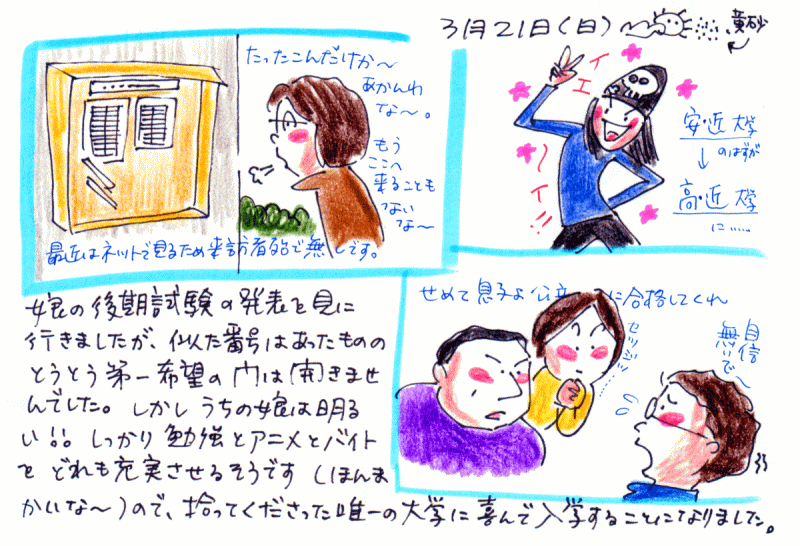 3月21日(日)
黄砂
たったこんだけか〜
あかんわ
な〜。
もう
ここへ
来ることも
ないな〜
最近はネットで見るため来訪者殆ど無しです。
イエ〜イ!!
安・近大学
↓のはずが
高・近大学
に……
せめて息子よ公立に合格してくれ
セツジツ……
自信
無いで〜
娘の後期試験の発表を見に
行きましたが、似た番号はあったものの
とうとう第一希望の門は開きませ
んでした。しかしうちの娘は明る
い!! しっかり勉強とアニメとバイト
をどれも充実させるそうです(ほんま
かいな〜)ので、拾ってくださった唯一の大学に喜んで入学することになりました。